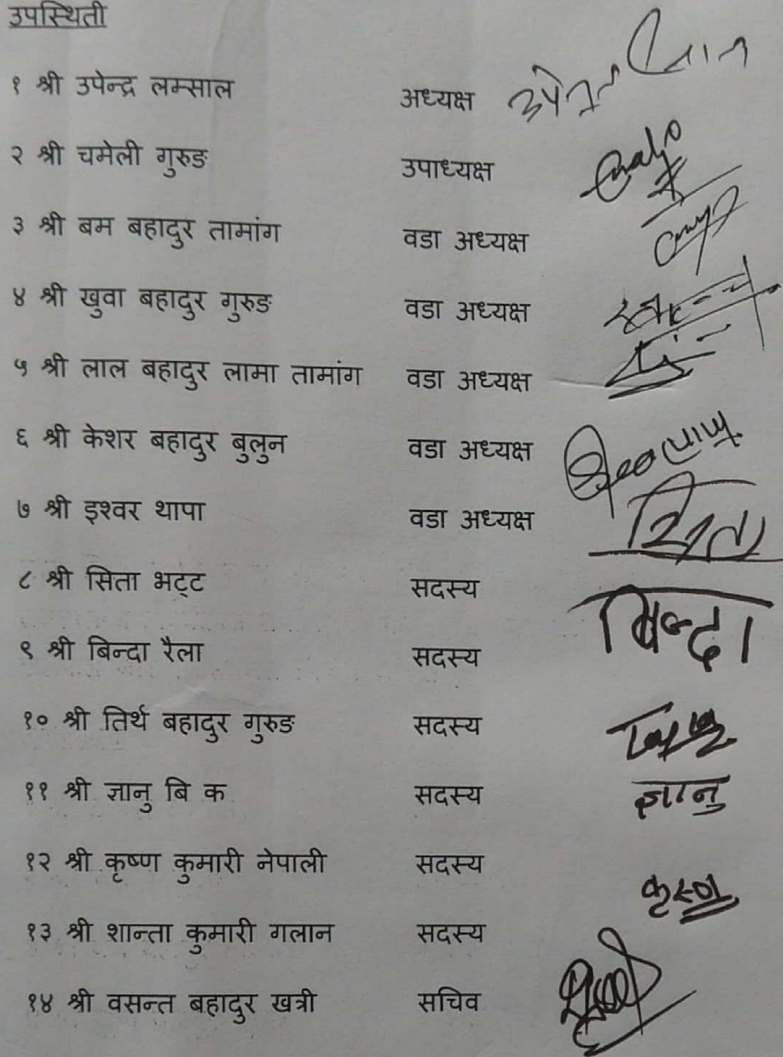 उपस्थिती
१ श्री उपेन्द्र लम्साल अध्यक्ष
२ श्री चमेली गुरुङ उपाध्यक्ष
३ श्री बम बहादुर तामांग वडा अध्यक्ष
४ श्री खुवा बहादुर गुरुङ वडा अध्यक्ष
५ श्री लाल बहादुर लामा तामांग वडा अध्यक्ष
६ श्री केशर बहादुर बुलुन वडा अध्यक्ष
७ श्री इश्वर थापा वडा अध्यक्ष
८ श्री सिता भट्ट सदस्य
९ श्री बिन्दा रैला सदस्य बिन्दा
१० श्री तिर्थ बहादुर गुरुङ सदस्य
११ श्री ज्ञानु बि क सदस्य ज्ञानु
१२ श्री कृष्ण कुमारी नेपाली सदस्य
१३ श्री शान्ता कुमारी गलान सदस्य
१४ श्री वसन्त बहादुर खत्री सचिव